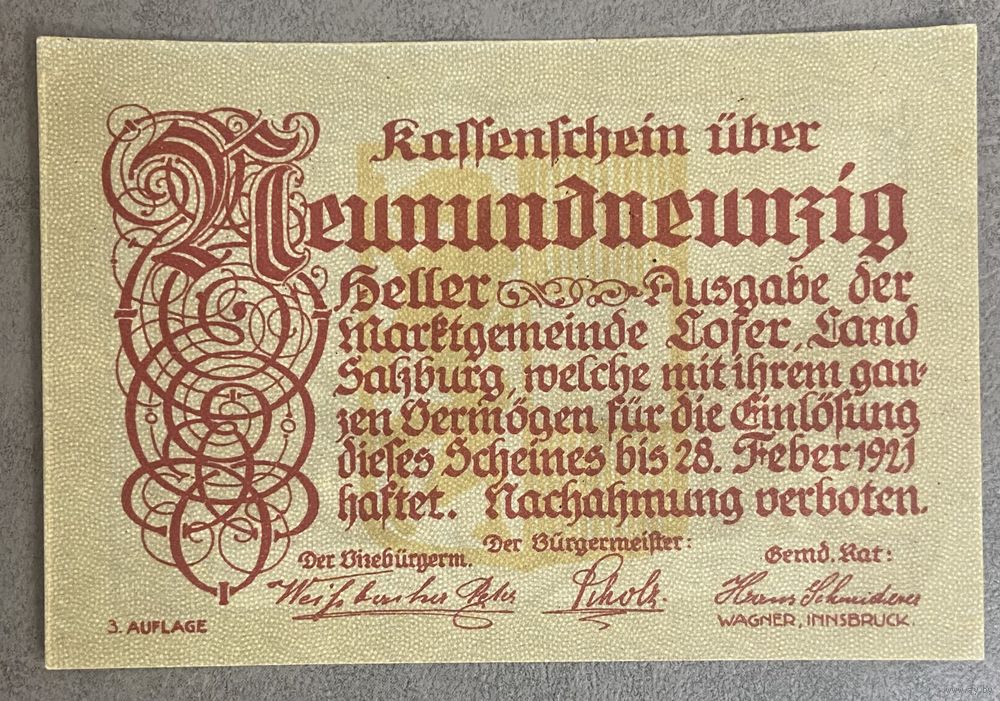 Kassenschein über
Neunundneunzig
Heller Ausgabe der
Marktgemeinde Lofer, Land
Salzburg, welche mit ihrem gan-
zen Vermögen für die Einlösung
dieses Scheines bis 28. Feber 1921
haftet. Nachahmung verboten.
Der Vizebürgerm. Der Bürgermeister: Gemd. Rat:
Weißbacher Peter Scholz. Hans Schmiderer
3. AUFLAGE WAGNER, INNSBRUCK.